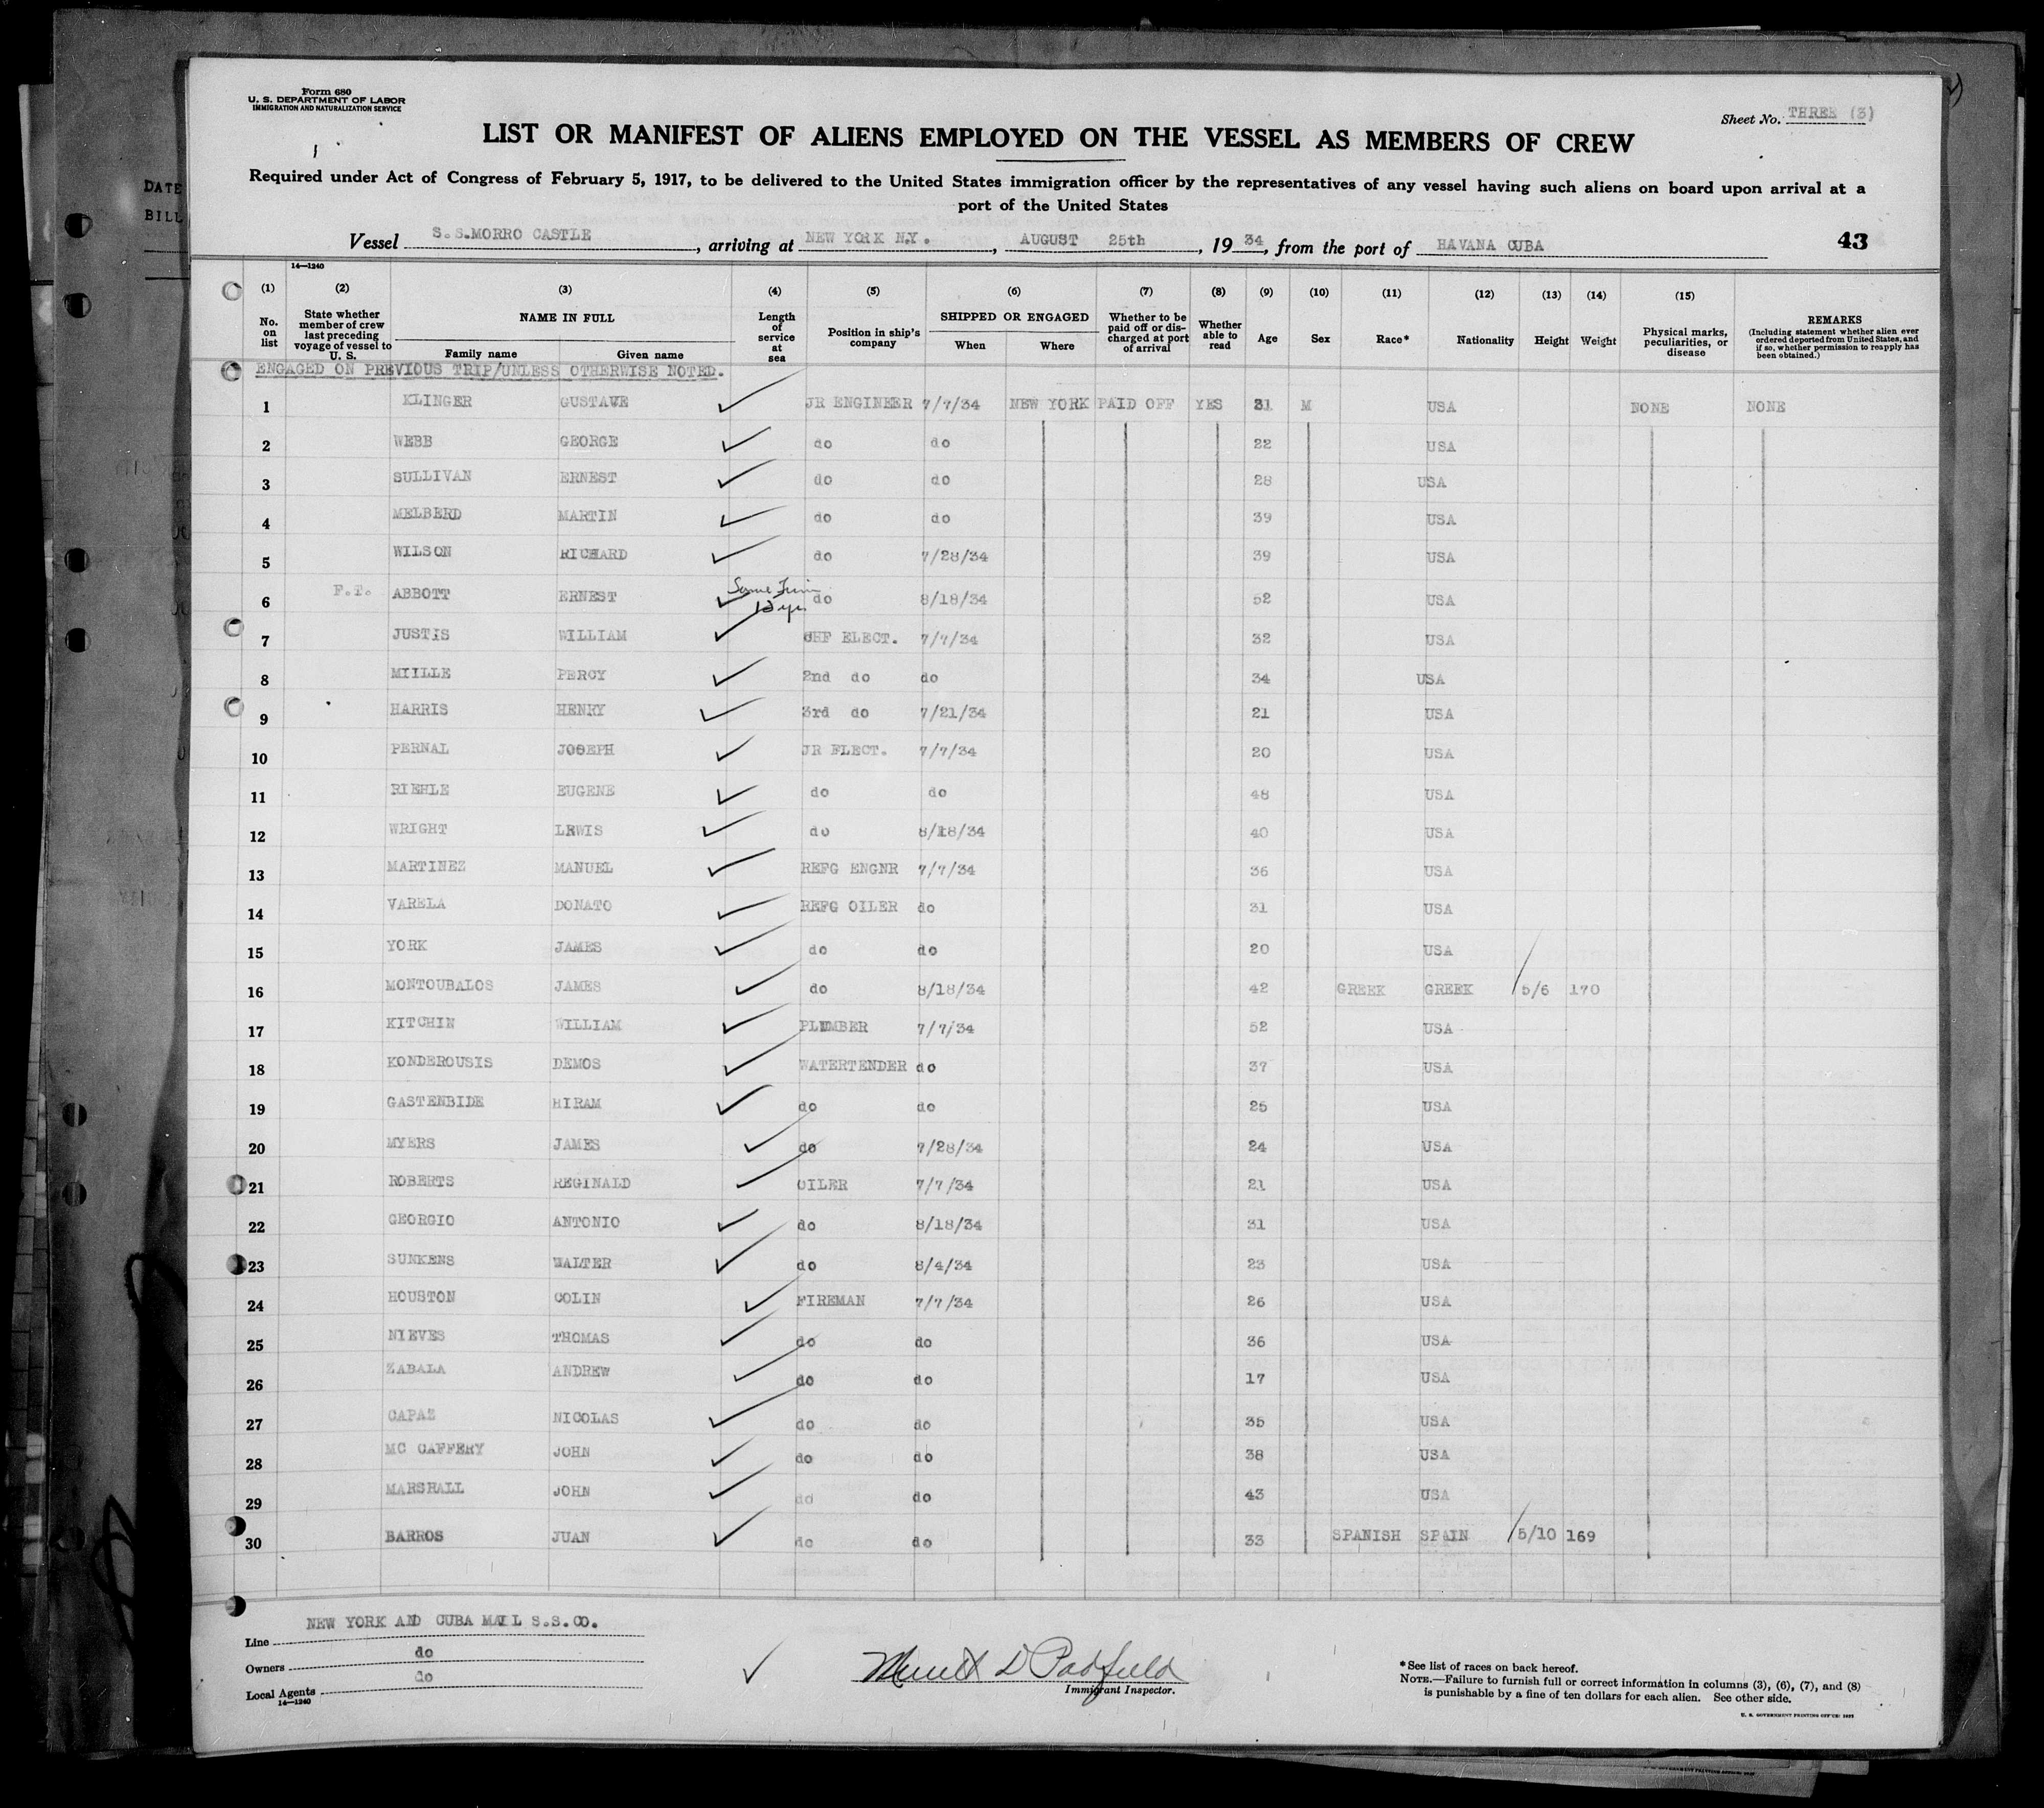 Form 680
U. S. DEPARTMENT OF LABOR
IMMIGRATION AND NATURALIZATION SERVICE
Sheet No. THREE (3)
LIST OR MANIFEST OF ALIENS EMPLOYED ON THE VESSEL AS MEMBERS OF CREW
Required under Act of Congress of February 5, 1917, to be delivered to the United States immigration officer by the representatives of any vessel having such aliens on board upon arrival at a
port of the United States
DATE
BILL
Vessel S.S.MORRO CASTLE, arriving at NEW YORK N.Y., AUGUST 25th, 1934, from the port of HAVANA CUBA 43
14—1240
(1) (2) (3) (4) (5) (6) (7) (8) (9) (10) (11) (12) (13) (14) (15)
No. on list State whether member of crew last preceding voyage of vessel to U. S. NAME IN FULL Family name Given name Length of service at sea Position in ship's company SHIPPED OR ENGAGED When Where Whether to be paid off or discharged at port of arrival Whether able to read Age Sex Race* Nationality Height Weight Physical marks, peculiarities, or disease REMARKS (Including statement whether alien ever ordered deported from United States, and if so, whether permission to reapply has been obtained.)
ENGAGED ON PREVIOUS TRIP/UNLESS OTHERWISE NOTED.
1 KLINGER GUSTAVE JR ENGINEER 7/7/34 NEW YORK PAID OFF YES 31 M USA NONE NONE
2 WEBB GEORGE do do 22 USA
3 SULLIVAN ERNEST do do 28 USA
4 MELBERD MARTIN do do 39 USA
5 WILSON RICHARD do 7/28/34 39 USA
6 F.T. ABBOTT ERNEST do 8/18/34 52 USA
7 JUSTIS WILLIAM CHF ELECT. 7/7/34 32 USA
8 MIILLE PERCY 2nd do do 34 USA
9 HARRIS HENRY 3rd do 7/21/34 21 USA
10 PERNAL JOSEPH JR ELECT. 7/7/34 20 USA
11 RIEHLE EUGENE do do 48 USA
12 WRIGHT LEWIS do 8/18/34 40 USA
13 MARTINEZ MANUEL REFG ENGNR 7/7/34 36 USA
14 VARELA DONATO REFG OILER do 31 USA
15 YORK JAMES do do 20 USA
16 MONTOUBALOS JAMES do 8/18/34 42 GREEK GREEK 5/6 170
17 KITCHIN WILLIAM PLUMBER 7/7/34 52 USA
18 KONDEROUSIS DEMOS WATERTENDER do 37 USA
19 GASTENBIDE HIRAM do do 25 USA
20 MYERS JAMES do 7/28/34 24 USA
21 ROBERTS REGINALD OILER 7/7/34 21 USA
22 GEORGIO ANTONIO do 8/18/34 31 USA
23 SUNKENS WALTER do 8/4/34 23 USA
24 HOUSTON COLIN FIREMAN 7/7/34 26 USA
25 NIEVES THOMAS do do 36 USA
26 ZABALA ANDREW do do 17 USA
27 CAPAZ NICOLAS do do 35 USA
28 MC CAFFERY JOHN do do 38 USA
29 MARSHALL JOHN do do 43 USA
30 BARROS JUAN do do 33 SPANISH SPAIN 5/10 169
Line NEW YORK AND CUBA MAIL S.S.CO.
Owners do
Local Agents do
14—1240
Merritt D Padfield
Immigrant Inspector.
*See list of races on back hereof.
NOTE.—Failure to furnish full or correct information in columns (3), (6), (7), and (8)
is punishable by a fine of ten dollars for each alien. See other side.